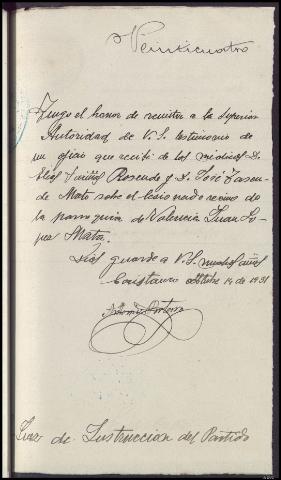 Veinticuatro
Tengo el honor de remitir a la Superior
Autoridad de V.S. testimonio de
un oficio que recibí de los médicos D.
Rosende y D. José
de Mato sobre el lesionado vecino de
la parroquia de Valencia Juan Ló-
pez Mata.
Dios guarde a V.S. muchos años
octubre 14 de 1931
Juez de Instruccion del Partido